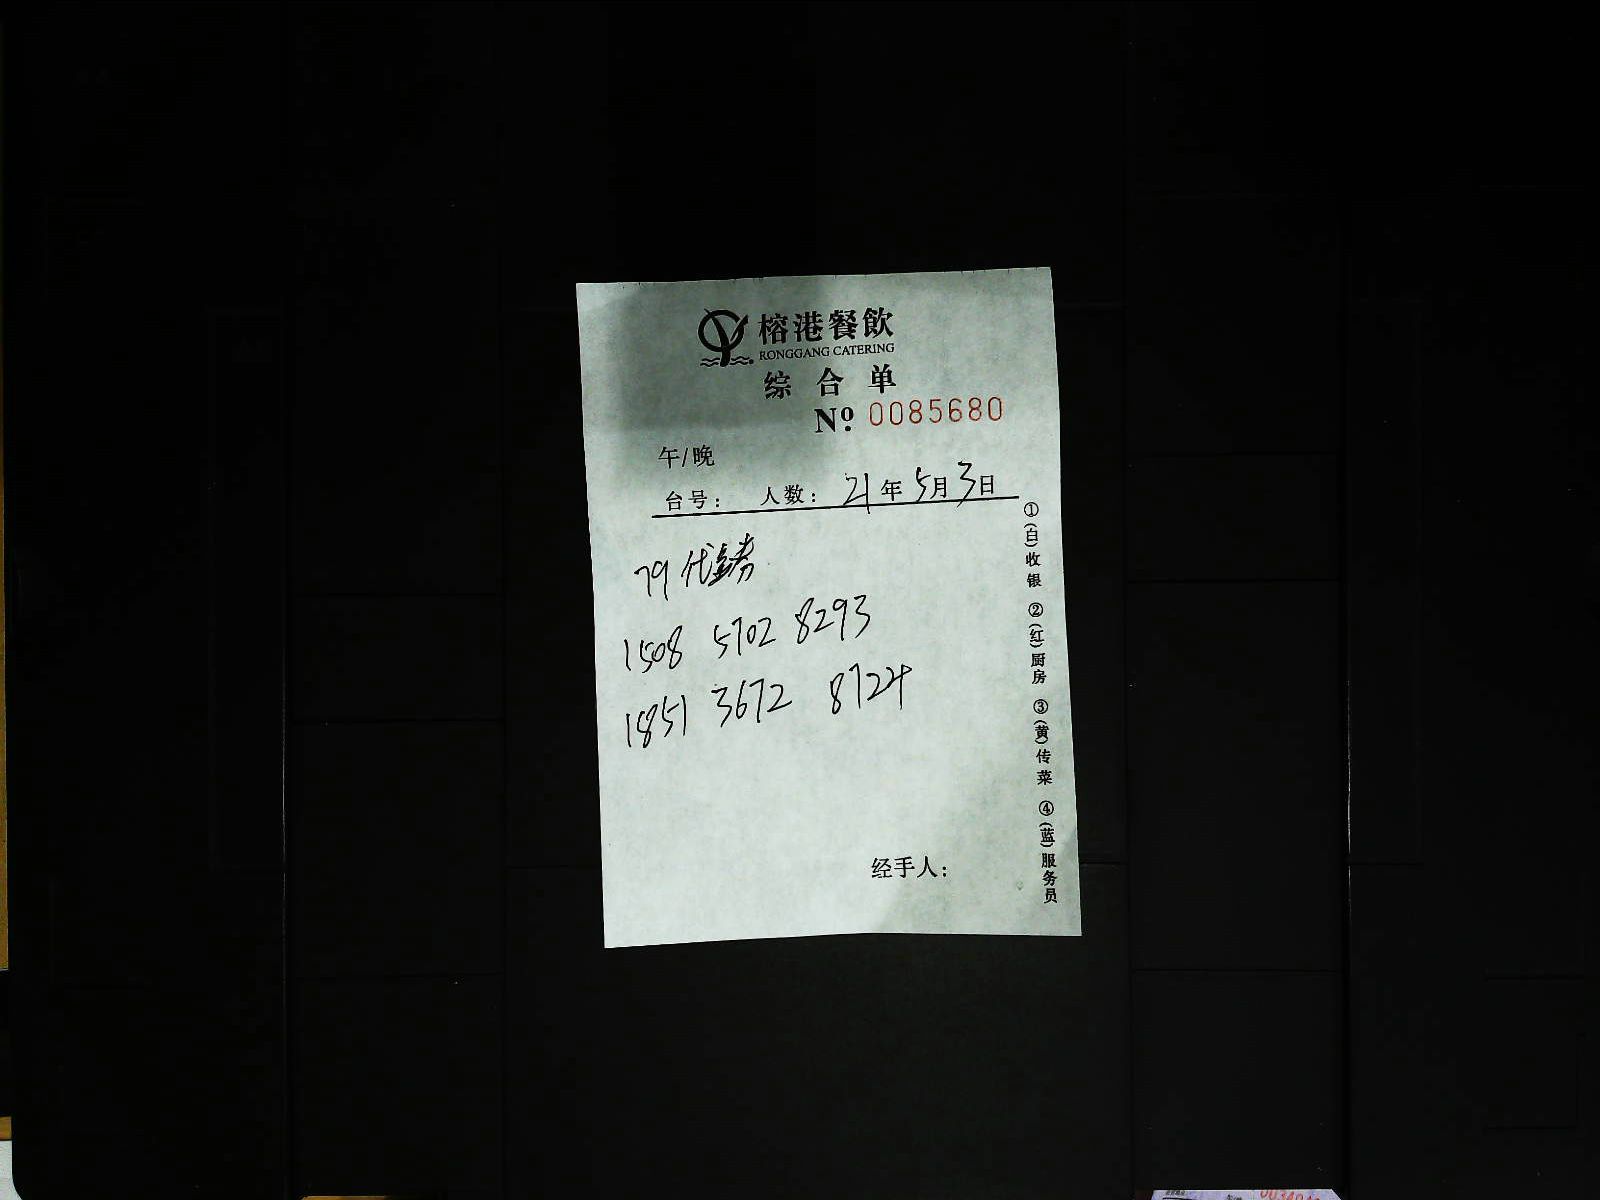 榕港餐飲
RONGGANG CATERING
综合单
Nº. 0085680
午/晚
台号: 人数: 21年5月3日
79代金券
1508 5702 8293
1851 3672 8724
经手人:
①(白)收银 ②(红)厨房 ③(黄)传菜 ④(蓝)服务员